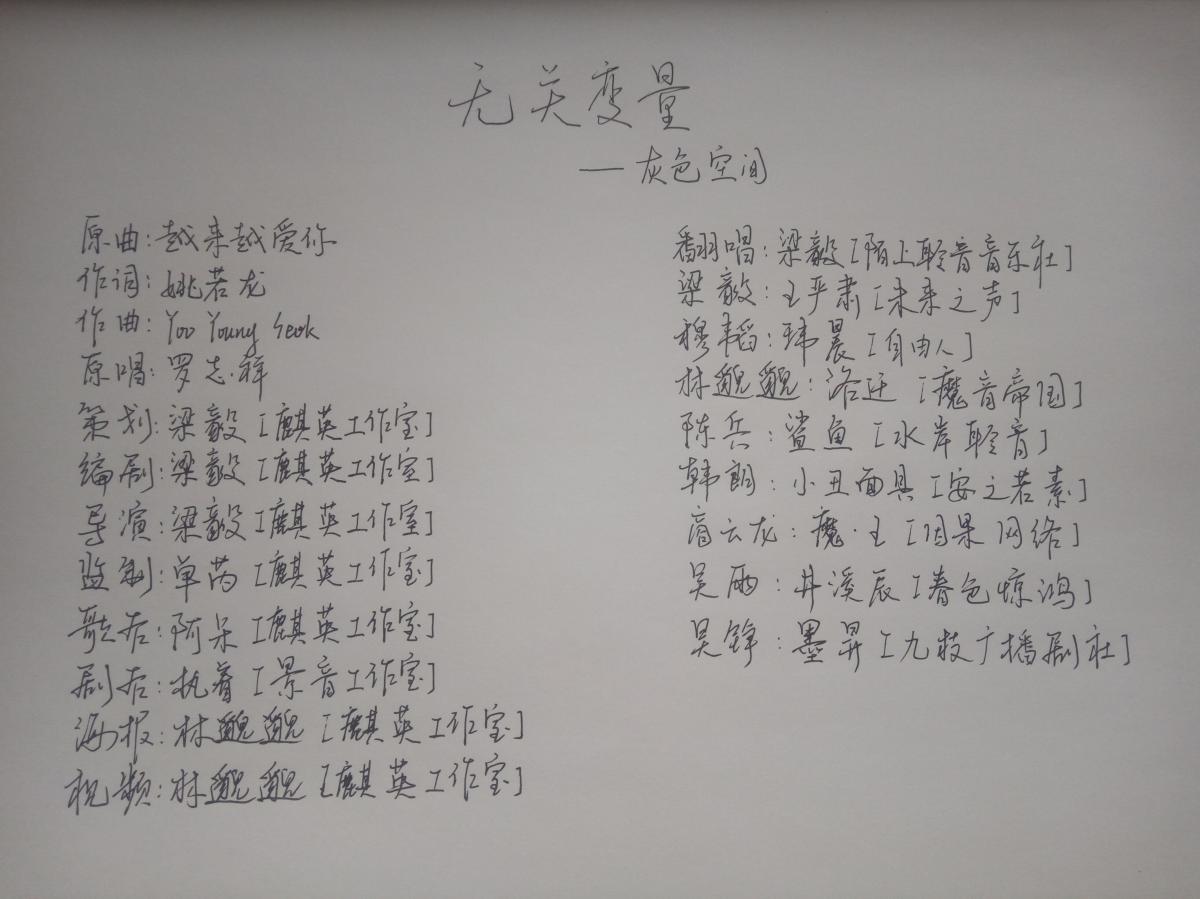 无关变量
—灰色空间
原曲:越来越爱你
作词:姚若龙
作曲:Yoo Young Seok
原唱:罗志祥
策划:梁毅[麒英工作室]
编剧:梁毅[麒英工作室]
导演:梁毅[麒英工作室]
监制:单芮[麒英工作室]
歌后:阿呆[麒英工作室]
剧后:执着[景音工作室]
海报:林邈邈[麒英工作室]
视频:林邈邈[麒英工作室]
翻唱:梁毅[陌上聆音音乐社]
梁毅:王严肃[未来之声]
穆韬:玮晨[自由人]
林邈邈:洛迁[魔音帝国]
陈兵:鲨鱼[水岸聆音]
韩朗:小丑面具[安之若素]
云龙:魔·王[因果网络]
吴雨:井溪辰[春色惊鸿]
吴铮:墨昇[九枝广播剧社]